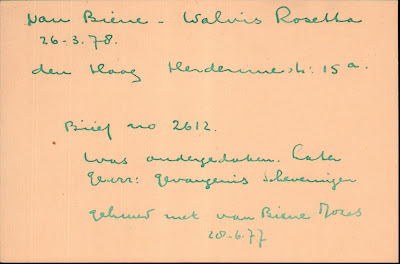 van Biene - Walvis Rosetta
26-3.78.
den Haag Herderinnestr: 15a.
Brief no 2612.
was ondergedoken. Later
gearr: gevangenis Scheveningen
gehuwd met van Biene Mozes
28-6-77